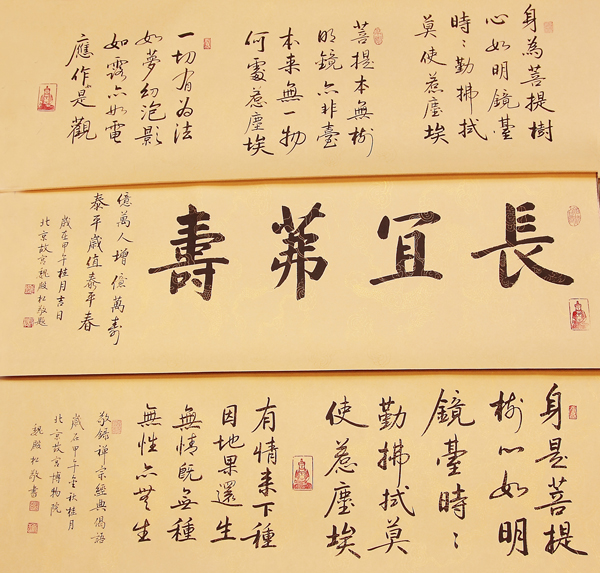 身為菩提樹
心如明鏡臺
時〻勤拂拭
莫使惹塵埃
菩提本無樹
明鏡亦非臺
本来無一物
何處惹塵埃
一切有為法
如夢幻泡影
如露亦如電
應作如是觀
長冝茀壽
億萬人增億萬壽
泰平歲值泰平春
歲在甲午桂月吉日
北京故宮魏殿松敬題
身是菩提
樹心如明
鏡臺時〻
勤拂拭莫
使惹塵埃
有情来下種
因地果還生
無情既無種
無性亦無生
敬錄禅宗經典偈語
歲在甲午金秋桂月
北京故宮博物院
魏殿松敬書